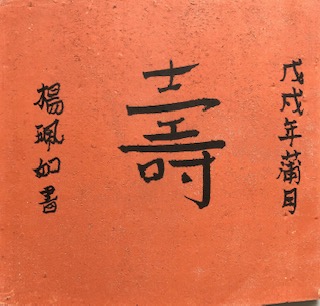 戊戌年蒲月
壽
楊珮如書